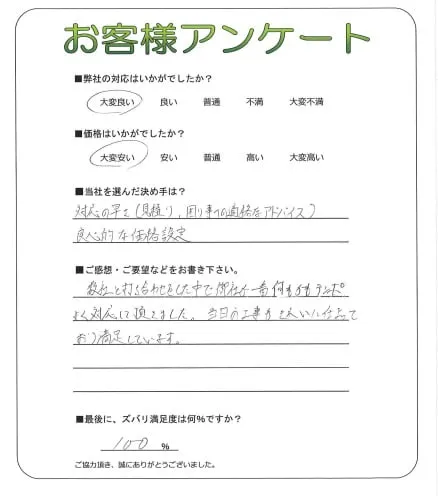 お客様アンケート
■弊社の対応はいかがでしたか?
大変良い 良い 普通 不満 大変不満
■価格はいかがでしたか?
大変安い 安い 普通 高い 大変高い
■当社を選んだ決め手は?
対応の早さ(見積り、困り事への適格なアドバイス)
良心的な価格設定
■ご感想・ご要望などをお書き下さい。
数社と打ち合わせをした中で御社が一番何もかもテンポ
よく対応して頂きました。当日の工事もきれいに仕上って
おり満足しています。
■最後に、ズバリ満足度は何%ですか?
100 %
ご協力頂き、誠にありがとうございました。